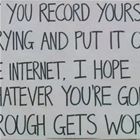 YOU RECORD YOURS
RYING AND PUT IT O
E INTERNET, I HOPE
HATEVER YOU'RE GO
ROUGH GETS WO